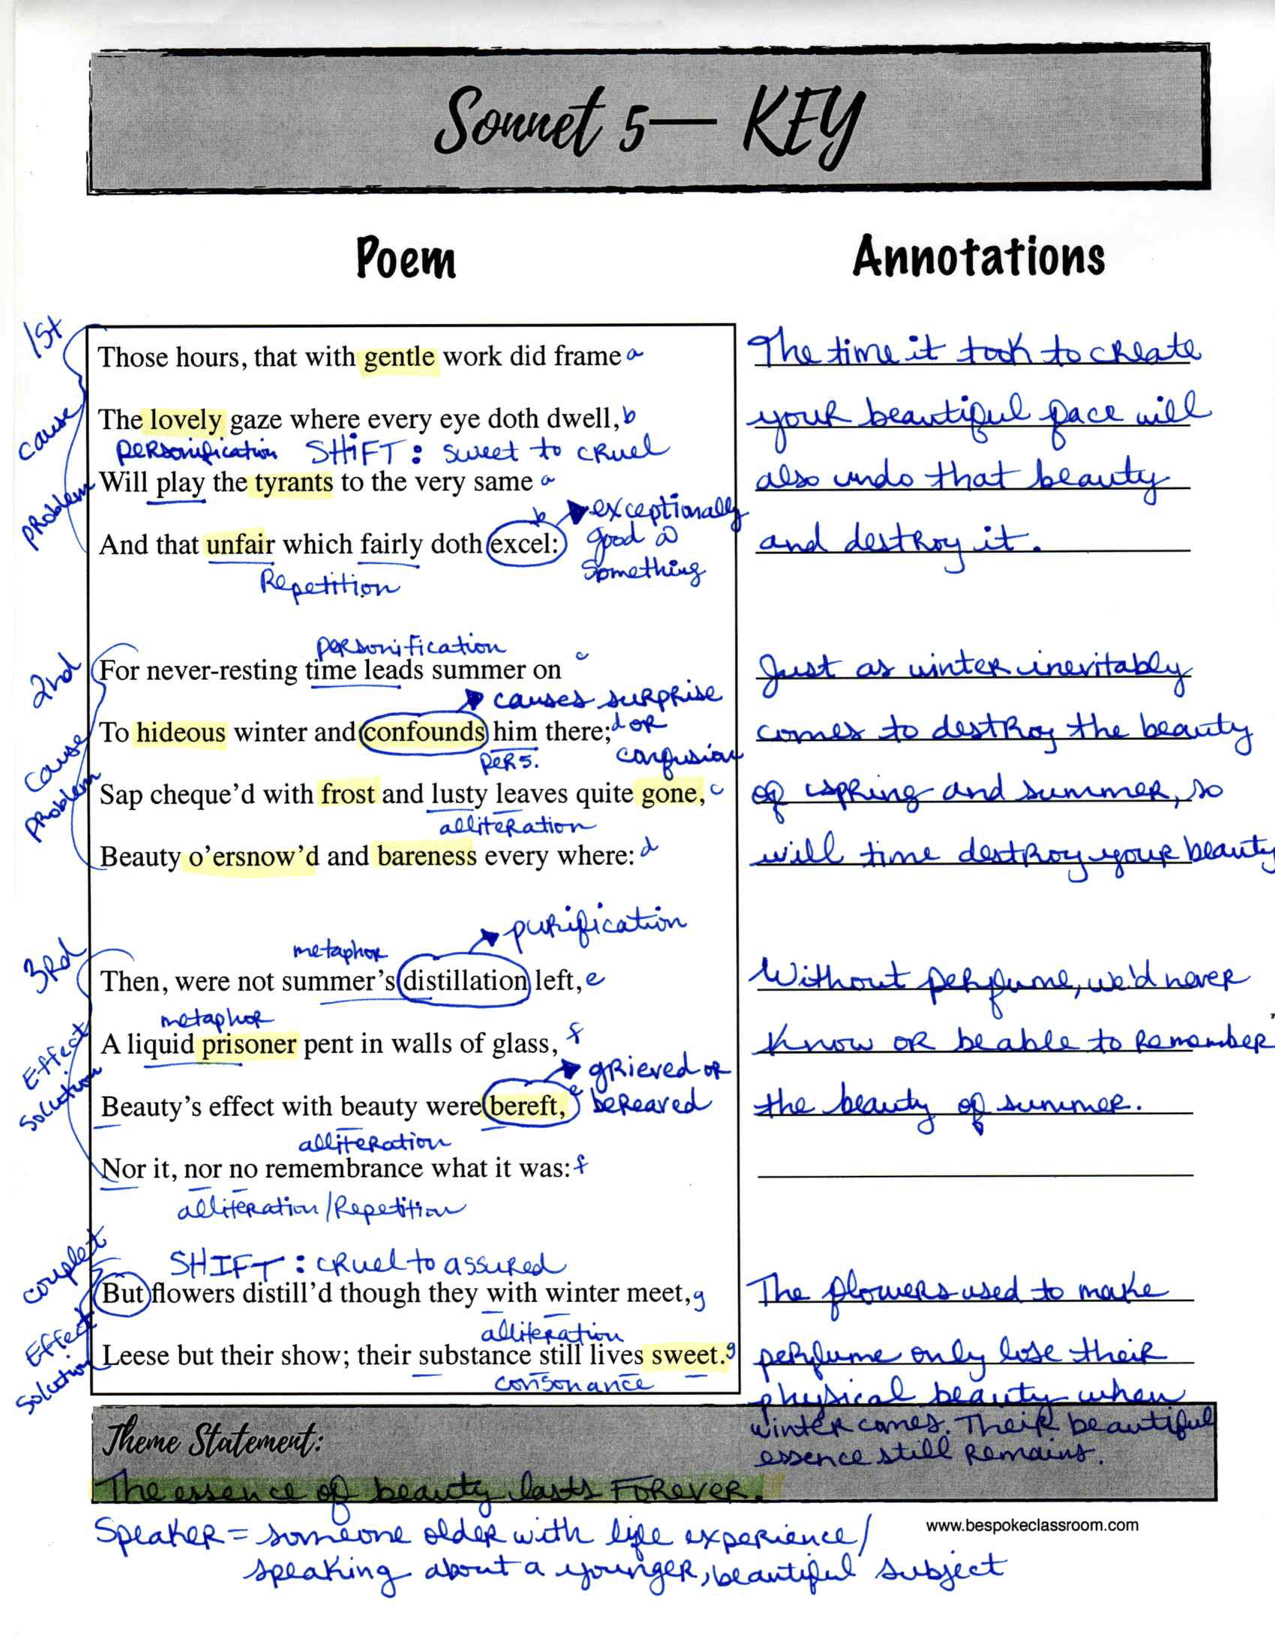 Sonnet 5— KEY
Poem
Annotations
1st
cause
problem
Those hours, that with gentle work did frame a
The lovely gaze where every eye doth dwell, b
personification SHIFT: sweet to cruel
Will play the tyrants to the very same a
And that unfair which fairly doth excel: b
exceptionally
good @
something
Repetition
The time it took to create
your beautiful face will
also undo that beauty
and destroy it.
2nd
cause
problem
personification
For never-resting time leads summer on c
causes surprise
To hideous winter and confounds him there; d or
pers.
confusion
Sap cheque'd with frost and lusty leaves quite gone, c
alliteration
Beauty o'ersnow'd and bareness every where: d
Just as winter inevitably
comes to destroy the beauty
of spring and summer, so
will time destroy your beauty
3rd
Effect
solution
purification
metaphor
Then, were not summer's distillation left, e
metaphor
A liquid prisoner pent in walls of glass, f
grieved or
Beauty's effect with beauty were bereft, e bereaved
alliteration
Nor it, nor no remembrance what it was: f
alliteration/Repetition
Without perfume, we'd never
know or be able to remember
the beauty of summer.
couplet
Effect
solution
SHIFT: cruel to assured
But flowers distill'd though they with winter meet, g
alliteration
Leese but their show; their substance still lives sweet. g
consonance
The flowers used to make
perfume only lose their
physical beauty when
winter comes. Their beautiful
essence still remains.
Theme Statement:
The essence of beauty lasts FOREVER.
Speaker = someone older with life experience/
speaking about a younger, beautiful subject
www.bespokeclassroom.com